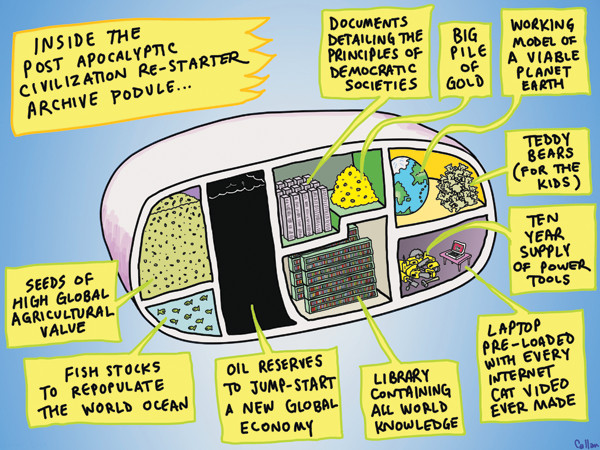 INSIDE THE
POST APOCALYPTIC
CIVILIZATION RE-STARTER
ARCHIVE PODULE...
DOCUMENTS
DETAILING THE
PRINCIPLES OF
DEMOCRATIC
SOCIETIES
BIG
PILE
OF
GOLD
WORKING
MODEL OF
A VIABLE
PLANET
EARTH
TEDDY
BEARS
(FOR THE
KIDS)
TEN
YEAR
SUPPLY
OF POWER
TOOLS
SEEDS OF
HIGH GLOBAL
AGRICULTURAL
VALUE
FISH STOCKS
TO REPOPULATE
THE WORLD OCEAN
OIL RESERVES
TO JUMP-START
A NEW GLOBAL
ECONOMY
LIBRARY
CONTAINING
ALL WORLD
KNOWLEDGE
LAPTOP
PRE-LOADED
WITH EVERY
INTERNET
CAT VIDEO
EVER MADE